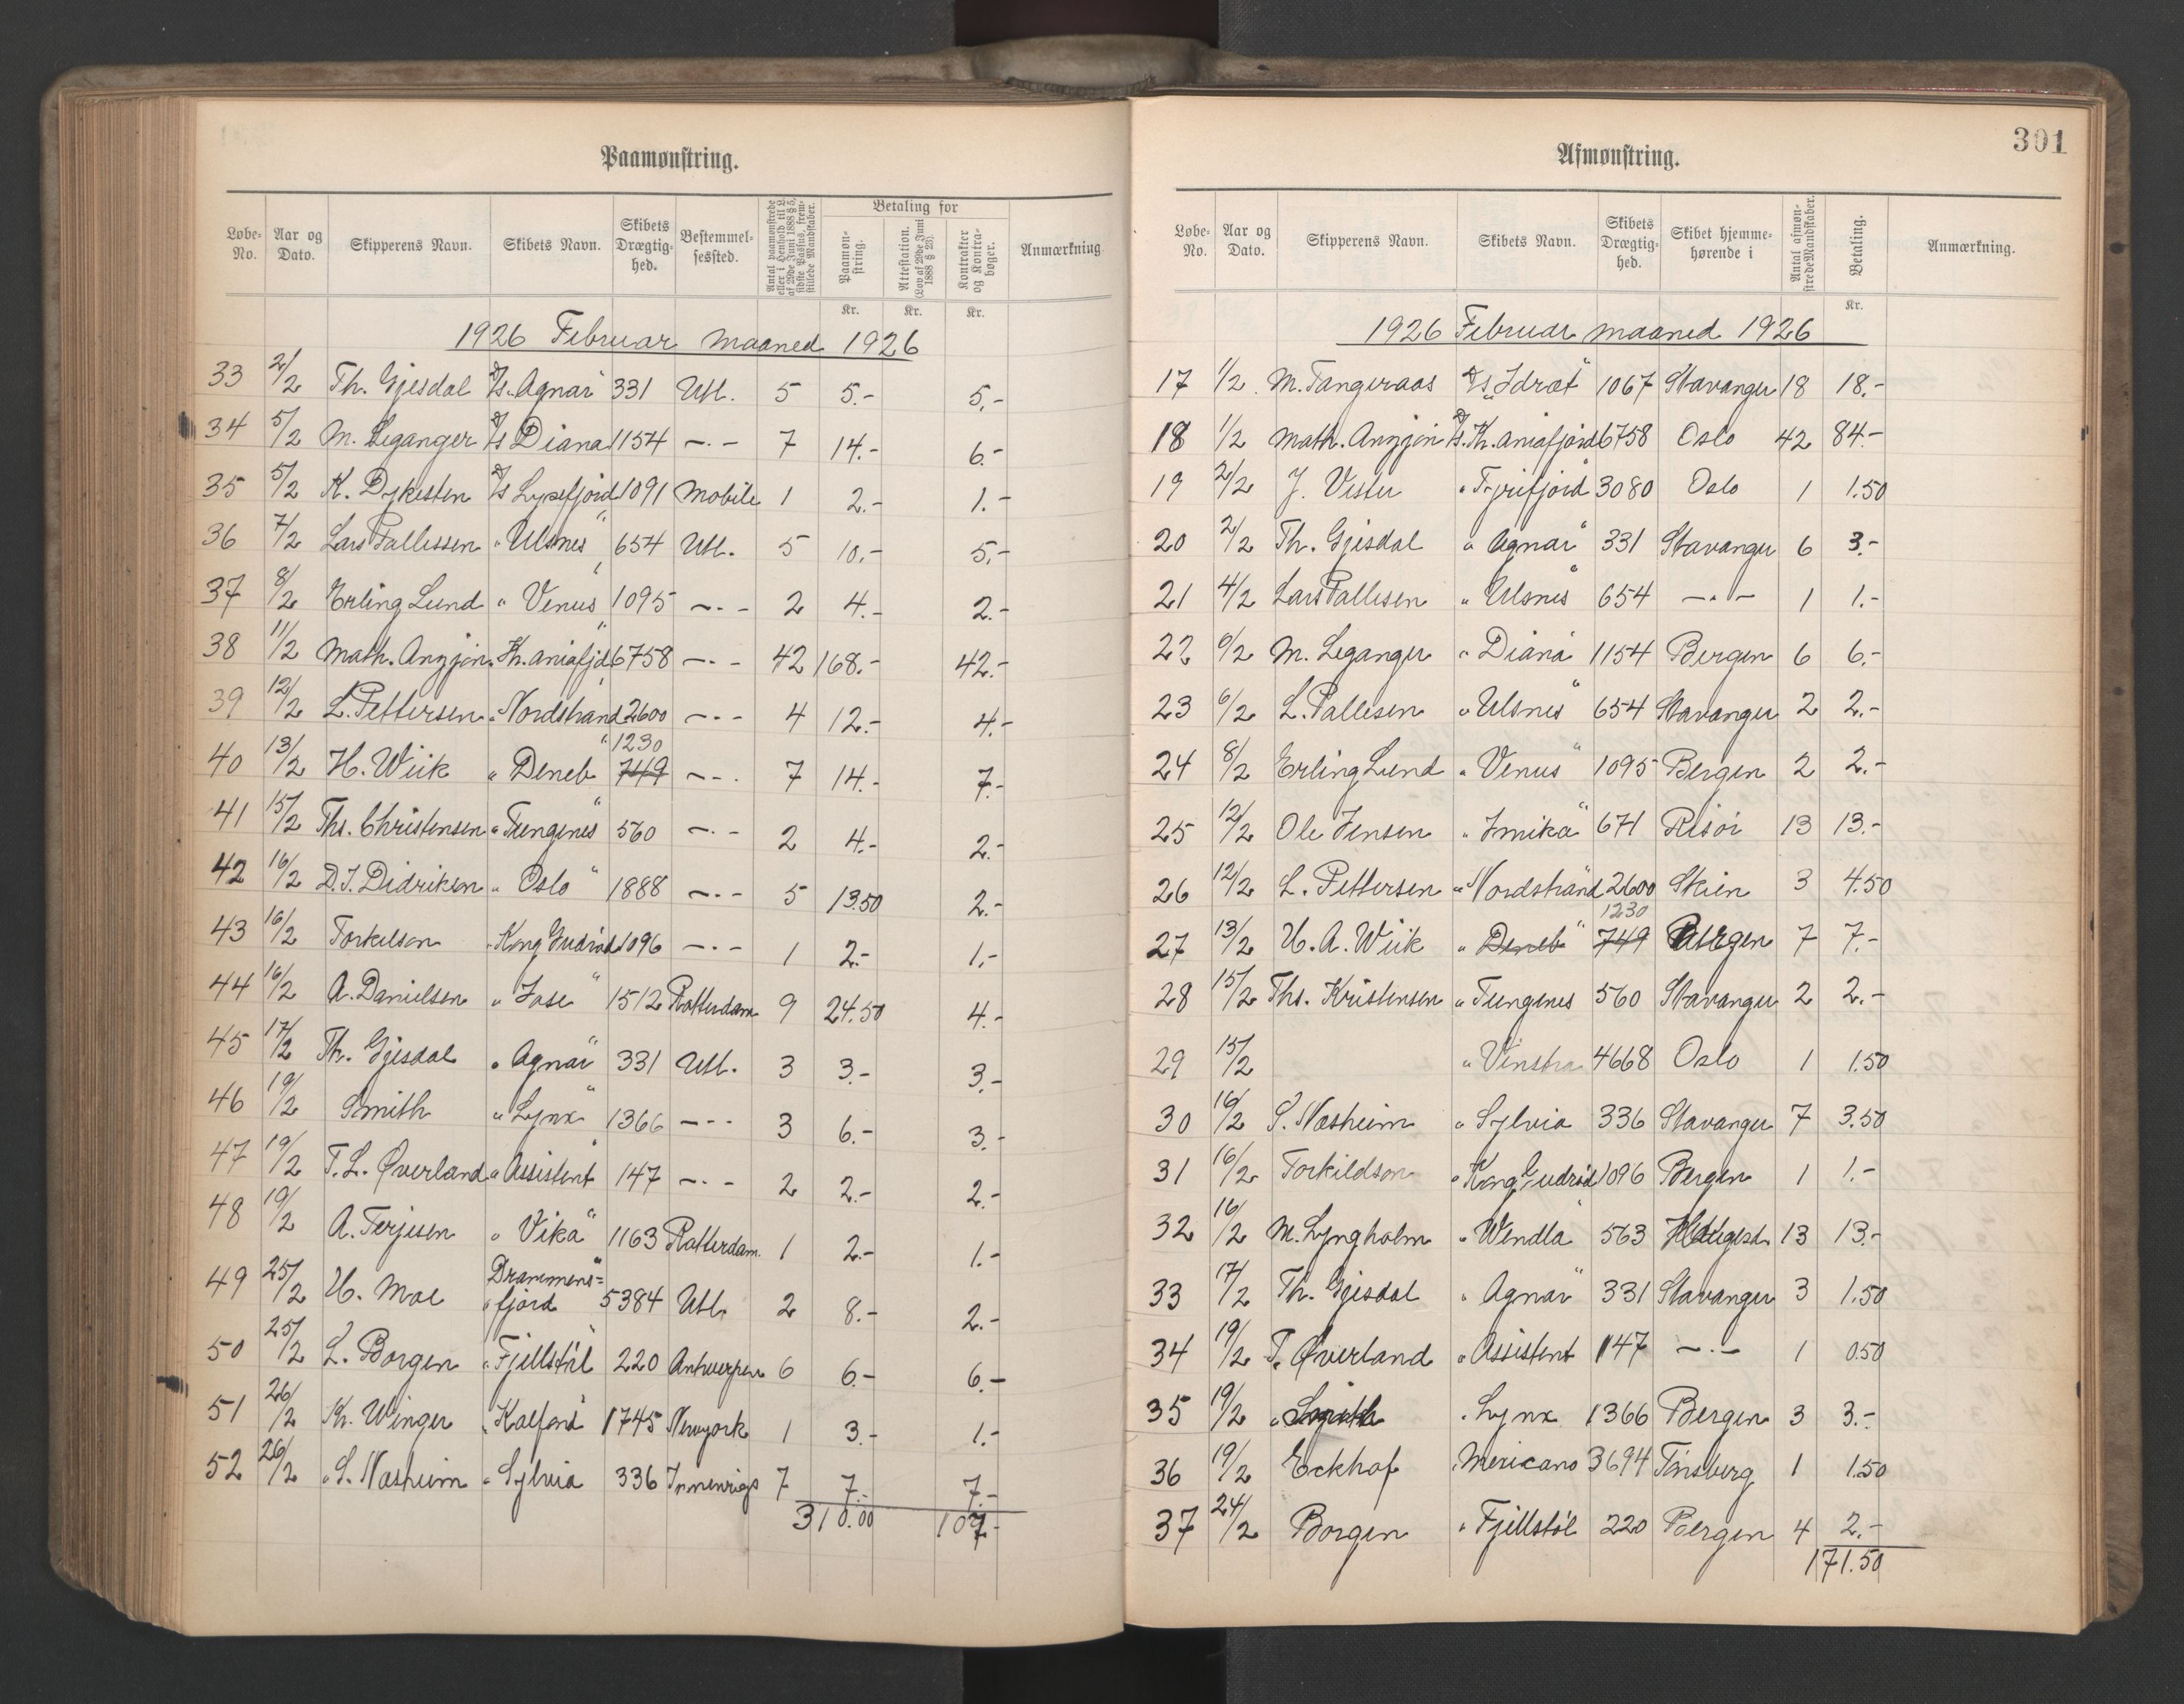 Paamønstring.
Løbe-No. Aar og Dato. Skipperens Navn. Skibets Navn. Skibets Drægtighed. Bestemmelsessted. Antal paamønstrede eller i Henhold til L. af 29de Juni 1888 § 5, sidste Passus, fremstillede Mandskaber. Betaling for Paamønstring. Attestation. (Lov af 29de Juni 1888 § 25). Kontrakter og Kontrabøger. Anmærkning
Kr. Kr. Kr.
1926 Februar maaned 1926
33 2/2 Th. Gjesdal D/s „Agnar" 331 Utl. 5 5.- 5.-
34 5/2 M. Leganger D/s Diana 1154 -.- 7 14.- 6.-
35 5/2 K. Dykesten D/s Lysefjord 1091 Mobile 1 2.- 1.-
36 7/2 Lars Pallesen „ Ulsnes" 654 Utl. 5 10.- 5.-
37 8/2 Erling Lund „ Venus" 1095 -.- 2 4.- 2.-
38 11/2 Math. Anzjøn „ Kr.aniafjd 6758 -.- 42 168.- 42.-
39 12/2 L. Pettersen „ Nordstrand 2600 -.- 4 12.- 4.-
1230
40 13/2 H. Wiik „ Deneb" 749 -.- 7 14.- 7.-
41 15/2 Ths. Christensen „ Tungenes" 560 -.- 2 4.- 2.-
42 16/2 D.J. Didriksen „ Oslo" 1888 -.- 5 13.50 2.-
43 16/2 Torkelsen „ Kong Gudrød 1096 -.- 1 2.- 1.-
44 16/2 A. Danielsen „ Jose" 1512 Rotterdam 9 24.50 4.-
45 17/2 Th. Gjesdal „ Agnar" 331 Utl. 3 3.- 3.-
46 19/2 Smith „ Lynx" 1366 -.- 3 6.- 3.-
47 19/2 T.L. Øverland „ Assistent 147 -.- 2 2.- 2.-
48 19/2 A. Terjesen „ Vika" 1163 Rotterdam. 1 2.- 1.-
Drammens=
49 25/2 H. Moe „ fjord 5384 Utl. 2 8.- 2.-
50 25/2 L. Borgen „ Fjellstøl 220 Antwerpen 6 6.- 6.-
51 26/2 Kr. Winger „ Kalfond 1745 Newyork 1 3.- 1.-
52 26/2 S. Nasheim „ Sylvia 336 Innenrigs 7 7.- 7.-
310.00 107.-
Afmønstring.
301
Løbe-No. Aar og Dato. Skipperens Navn. Skibets Navn. Skibets Drægtighed. Skibet hjemmehørende i Antal afmønstrede Mandskaber. Betaling. Anmærkning.
Kr.
1926 Februar maaned 1926
17 1/2 M. Tangeraas D/s „Idræt" 1067 Stavanger 18 18.-
18 1/2 Math. Anzjøn D/s. Kr.aniafjord 6758 Oslo 42 84.-
19 2/2 J. Vister „ Tyrifjord 3080 Oslo 1 1.50
20 2/2 Th. Gjesdal „ Agnar" 331 Stavanger 6 3.-
21 4/2 Lars Pallesen „ Ulsnes" 654 -.- 1 1.-
22 6/2 M. Leganger „ Diana 1154 Bergen 6 6.-
23 6/2 L. Pallesen „ Ulsnes" 654 Stavanger 2 2.-
24 8/2 Erling Lund „ Venus" 1095 Bergen 2 2.-
25 12/2 Ole Jensen „ Imika" 671 Risör 13 13.-
26 12/2 L. Pettersen „ Nordstrand 2600 Skien 3 4.50
1230
27 13/2 H. A. Wiik „ Deneb" 749 Bergen 7 7.-
28 15/2 Ths. Kristensen „ Tungenes 560 Stavanger 2 2.-
29 15/2 „ Vinstra 4668 Oslo 1 1.50
30 16/2 S. Nasheim „ Sylvia 336 Stavanger 7 3.50
31 16/2 Torkildson „ Kong Gudrød 1096 Bergen 1 1.-
32 16/2 M. Lyngholm „ Wendla" 563 Haugesd. 13 13.-
33 17/2 Th. Gjesdal „ Agnar" 331 Stavanger 3 1.50
34 19/2 T. Øverland „ Assistent 147 -.- 1 0.50
35 19/2 „ Smith „ Lynx 1366 Bergen 3 3.-
36 19/2 Eckhof „ Mexicano 3694 Tønsberg 1 1.50
37 24/2 Borgen „ Fjellstøl 220 Bergen 4 2.-
171.50